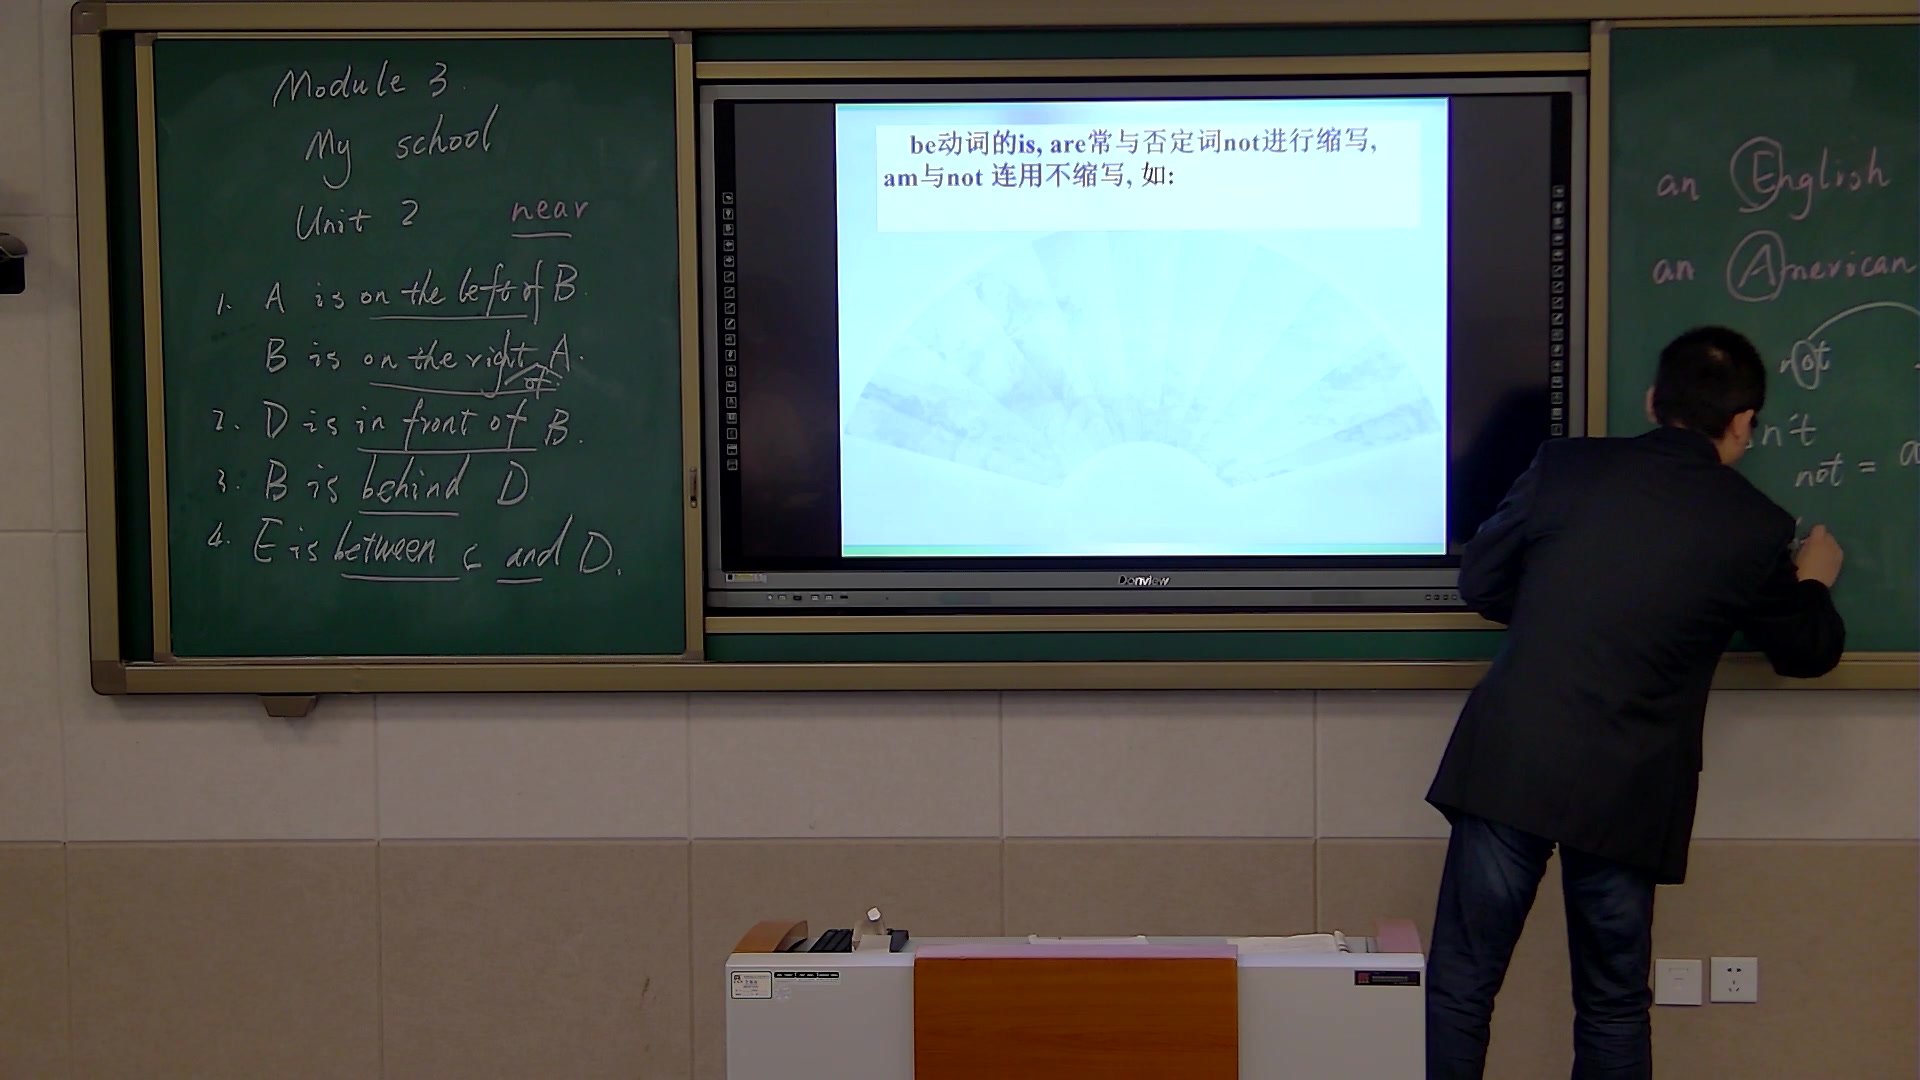 Module 3.
My school
Unit 2 near
1. A is on the left of B.
B is on the right of A.
2. D is in front of B.
3. B is behind D
4. E is between C and D.
be动词的is, are常与否定词not进行缩写,
am与not 连用不缩写, 如:
Donview
an English
an American
not
n't
not = a